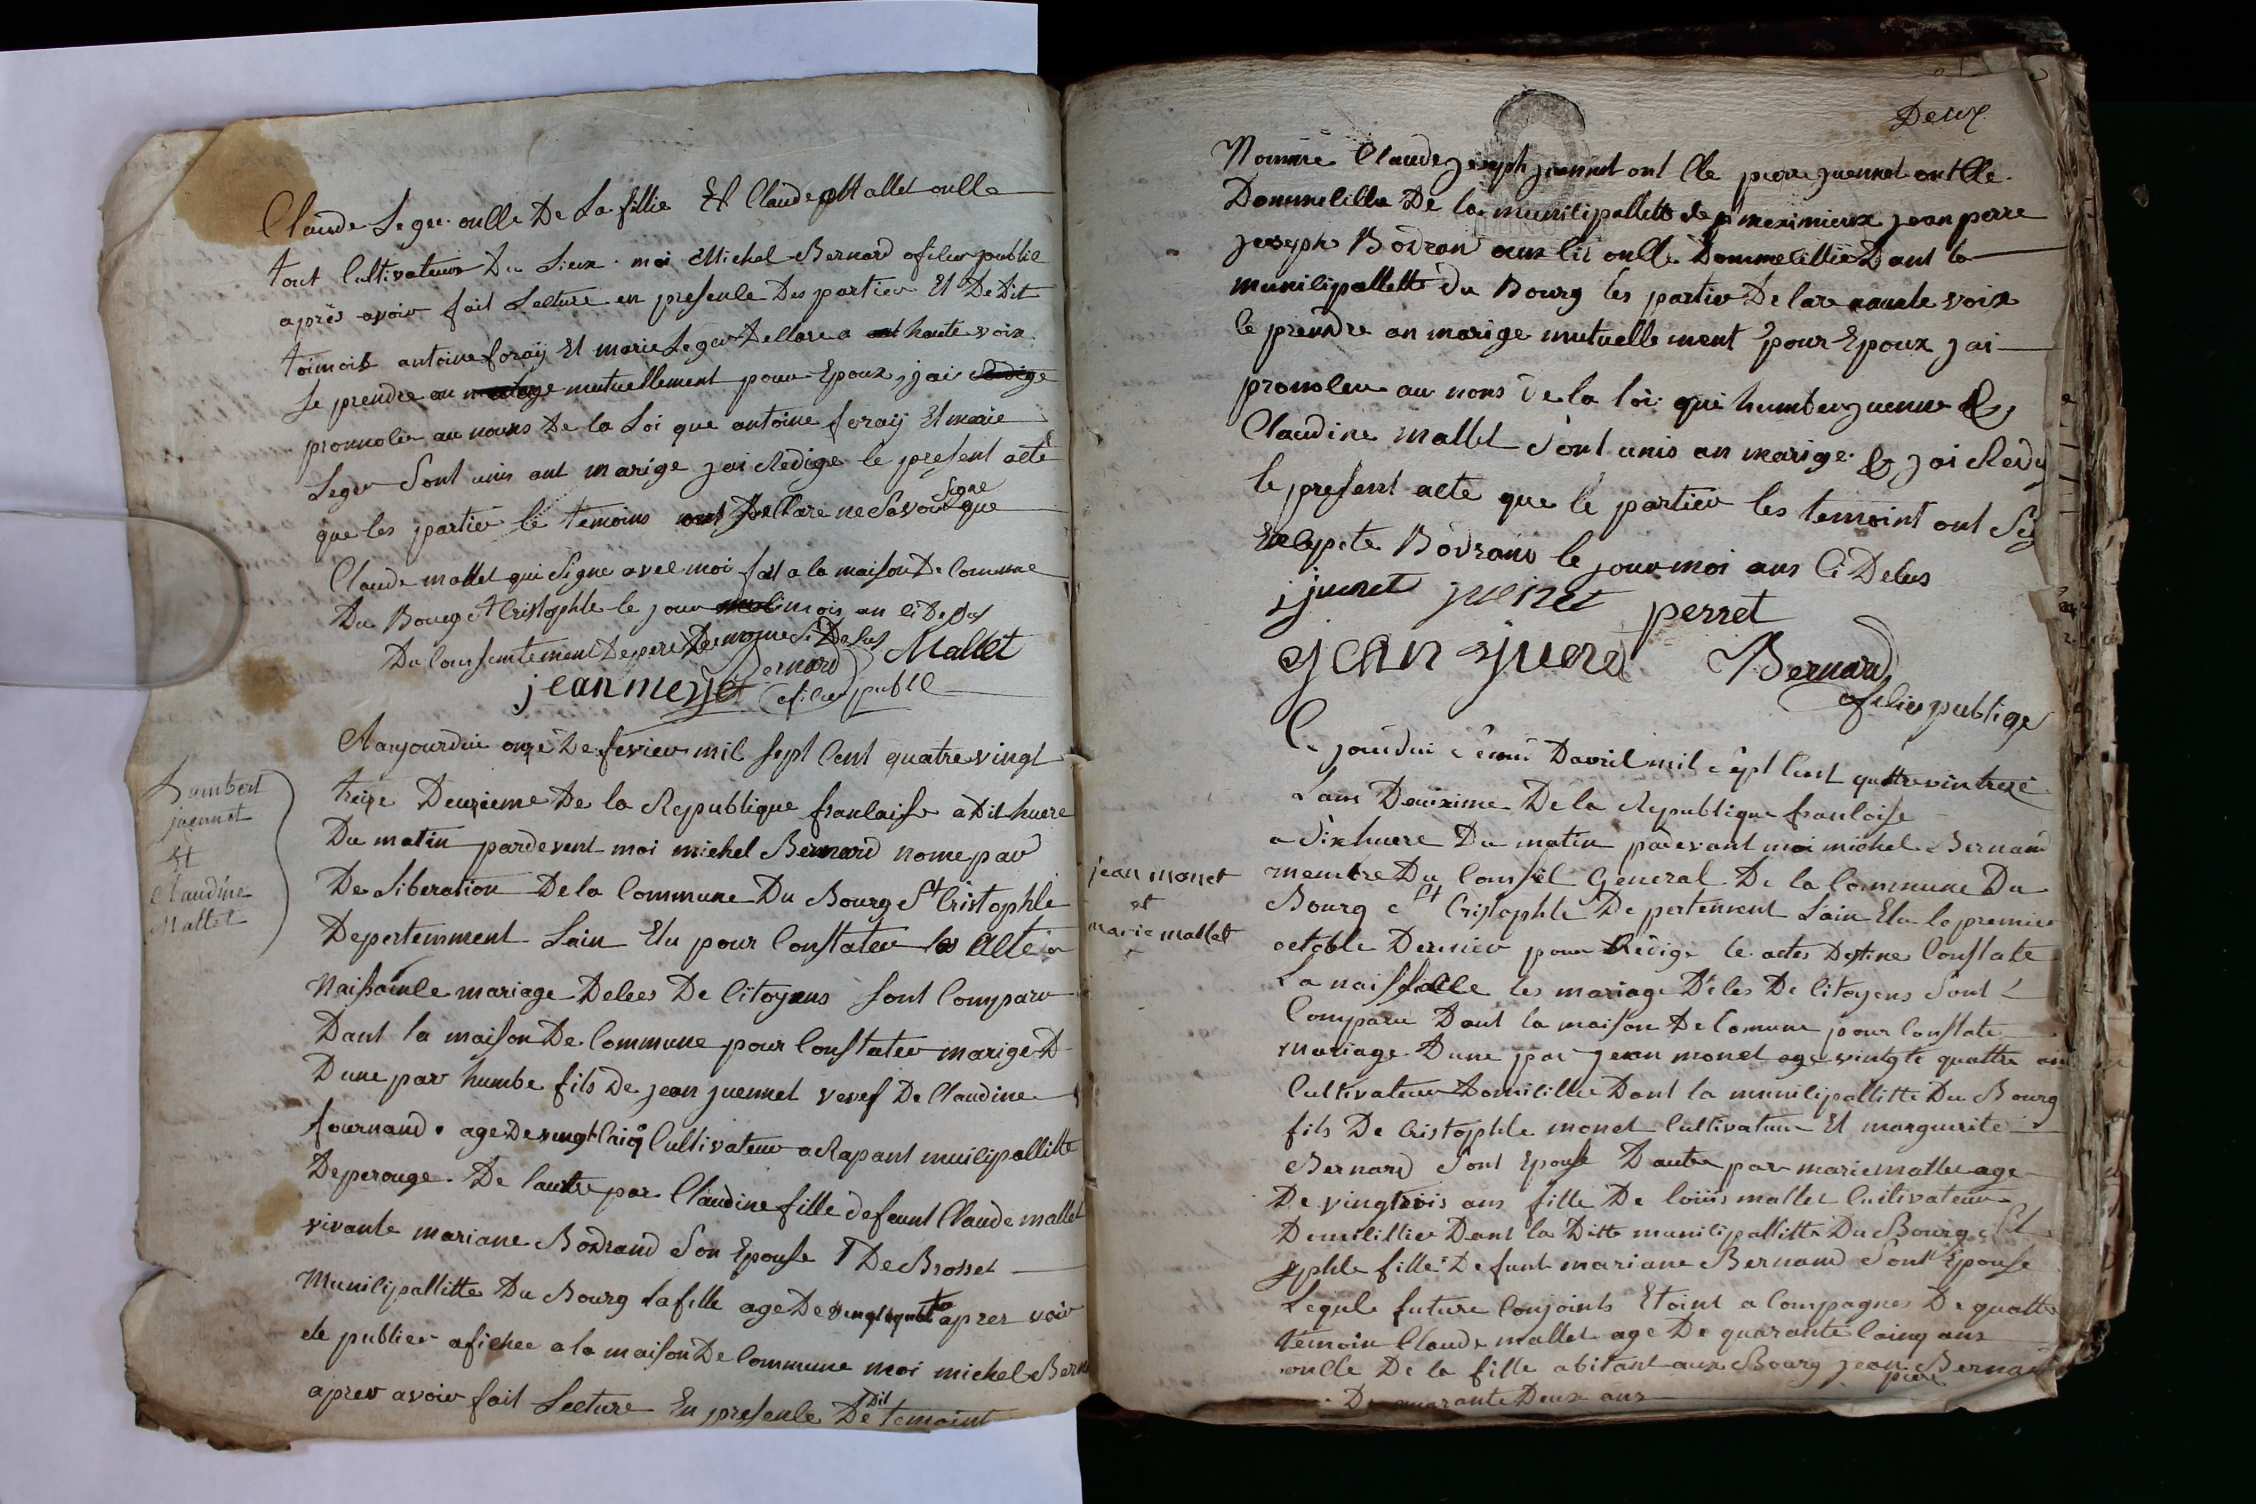 Claude Leger oncle De La fillie Et Claude Mallet oncle
tout Cultivateur Du Lieux moi Michel Bernard oficier public
après avoir fait Lecture en presence Des partier Et De Dit
toimoit antoine foraÿ Et marie Leger Decllare a haute voix
Se prendre an mutuellement pour Epoux, jai
pronnoler au nouns De la Loi que antoine foraÿ Et marie
Leger Sont unis ant marige jai Redige le present acte
que les partier le temoins Decllare ne Savoir Signe que
Claude mallet qui Signe avec moi fat a la maison De Commune
Du Bourg St Cristophle le jour mois an ci Desus
Du Consentement De pere De
Bernard Mallet
jean merget oficier public
Humbert
juennet
Et
Claudine
Mallet
Aaujourdui onze De fevrier mil sept Cent quatrevingt
treize Deuzieme De la Republique francaise a Dit huere
Du matin pardevent moi michel Bernard nome par
De Liberation De la Commune Du Bourg St Cristophle
Depertemment Lain Elu pour Constater les Acte
Naissainle mariage Delees De Citoyens sont Comparu
Dant la maison De Commune pour Constater marige D
Dune par humbe fils De jean juennet veuef De Claudine
fournand age De vingt Cinq Cultivateur a Rapant municipallitte
De perouge De lautre par Claudine fille defeunt Claude mallet
vivante mariane Bodrand Son Epouse De Brosset
Municipallitte Du Bourg La fille age De apres voir
ete publier afichee a la maison De Commune moi michel Berna
aprer avoir fait Lecture En presence De Dit temoint
Deux
Nomme Claude joseph juennet oncle pierre juennet oncle
Dommecillie De la municipallitte de meximieux jean perre
joseph Bodran oncle Dommecillie Dant la
municipallitte Du Bourg les partier De Clare a aute voix
Se prendre an marige mutuellement Epour Epoux jai
pronoleu au nons De la loi qui humber juenne &
Claudine mallet Sont unis an marige & jai Redij
le present acte que le partier les temoint ont Sig
Excepte Bodrand le jour moi ans Ci Desus
jjuenet juenet perret
jean juenet Bernard
oficier publige
jean monet
et
marie mallet
Davril mil Sept Cent quattrevintreze
Lans Deuxzime De la Republique francoise
a Six huere Du matin parevant moi michel Bernard
membre Du Conseil General De la Commune Du
Bourg St Cristophle Depertement Lain Elu le premier
octoble Dernier pour Redige le actes Destine Constate
La naissance les mariage Deles De Citoyens Sont
Comparu Dant la maison De Comune pour Constate
mariage Dune par jean monet age vingte quattre an
Cultivateur Domicillie Dant la municipallitte Du Bourg
fils De Cristophle monet Cultivateur Et marguerite
Bernard Sont Epouse Dautre par marie mallet age
De vingtrois ans fille De louis mallet Cultivateur
Domicillier Dant la Ditte municipallitte Du Bourg St
ophle fille Defunt mariane Bernand Sont Epouse
Lequels future Conjoints Etoint a Compagnes De quattre
temoin Claude mallet age De quarante Cainq ans
oncle De la fille abitant aux Bourg jean pierre Bernard
De quarante Deux ans